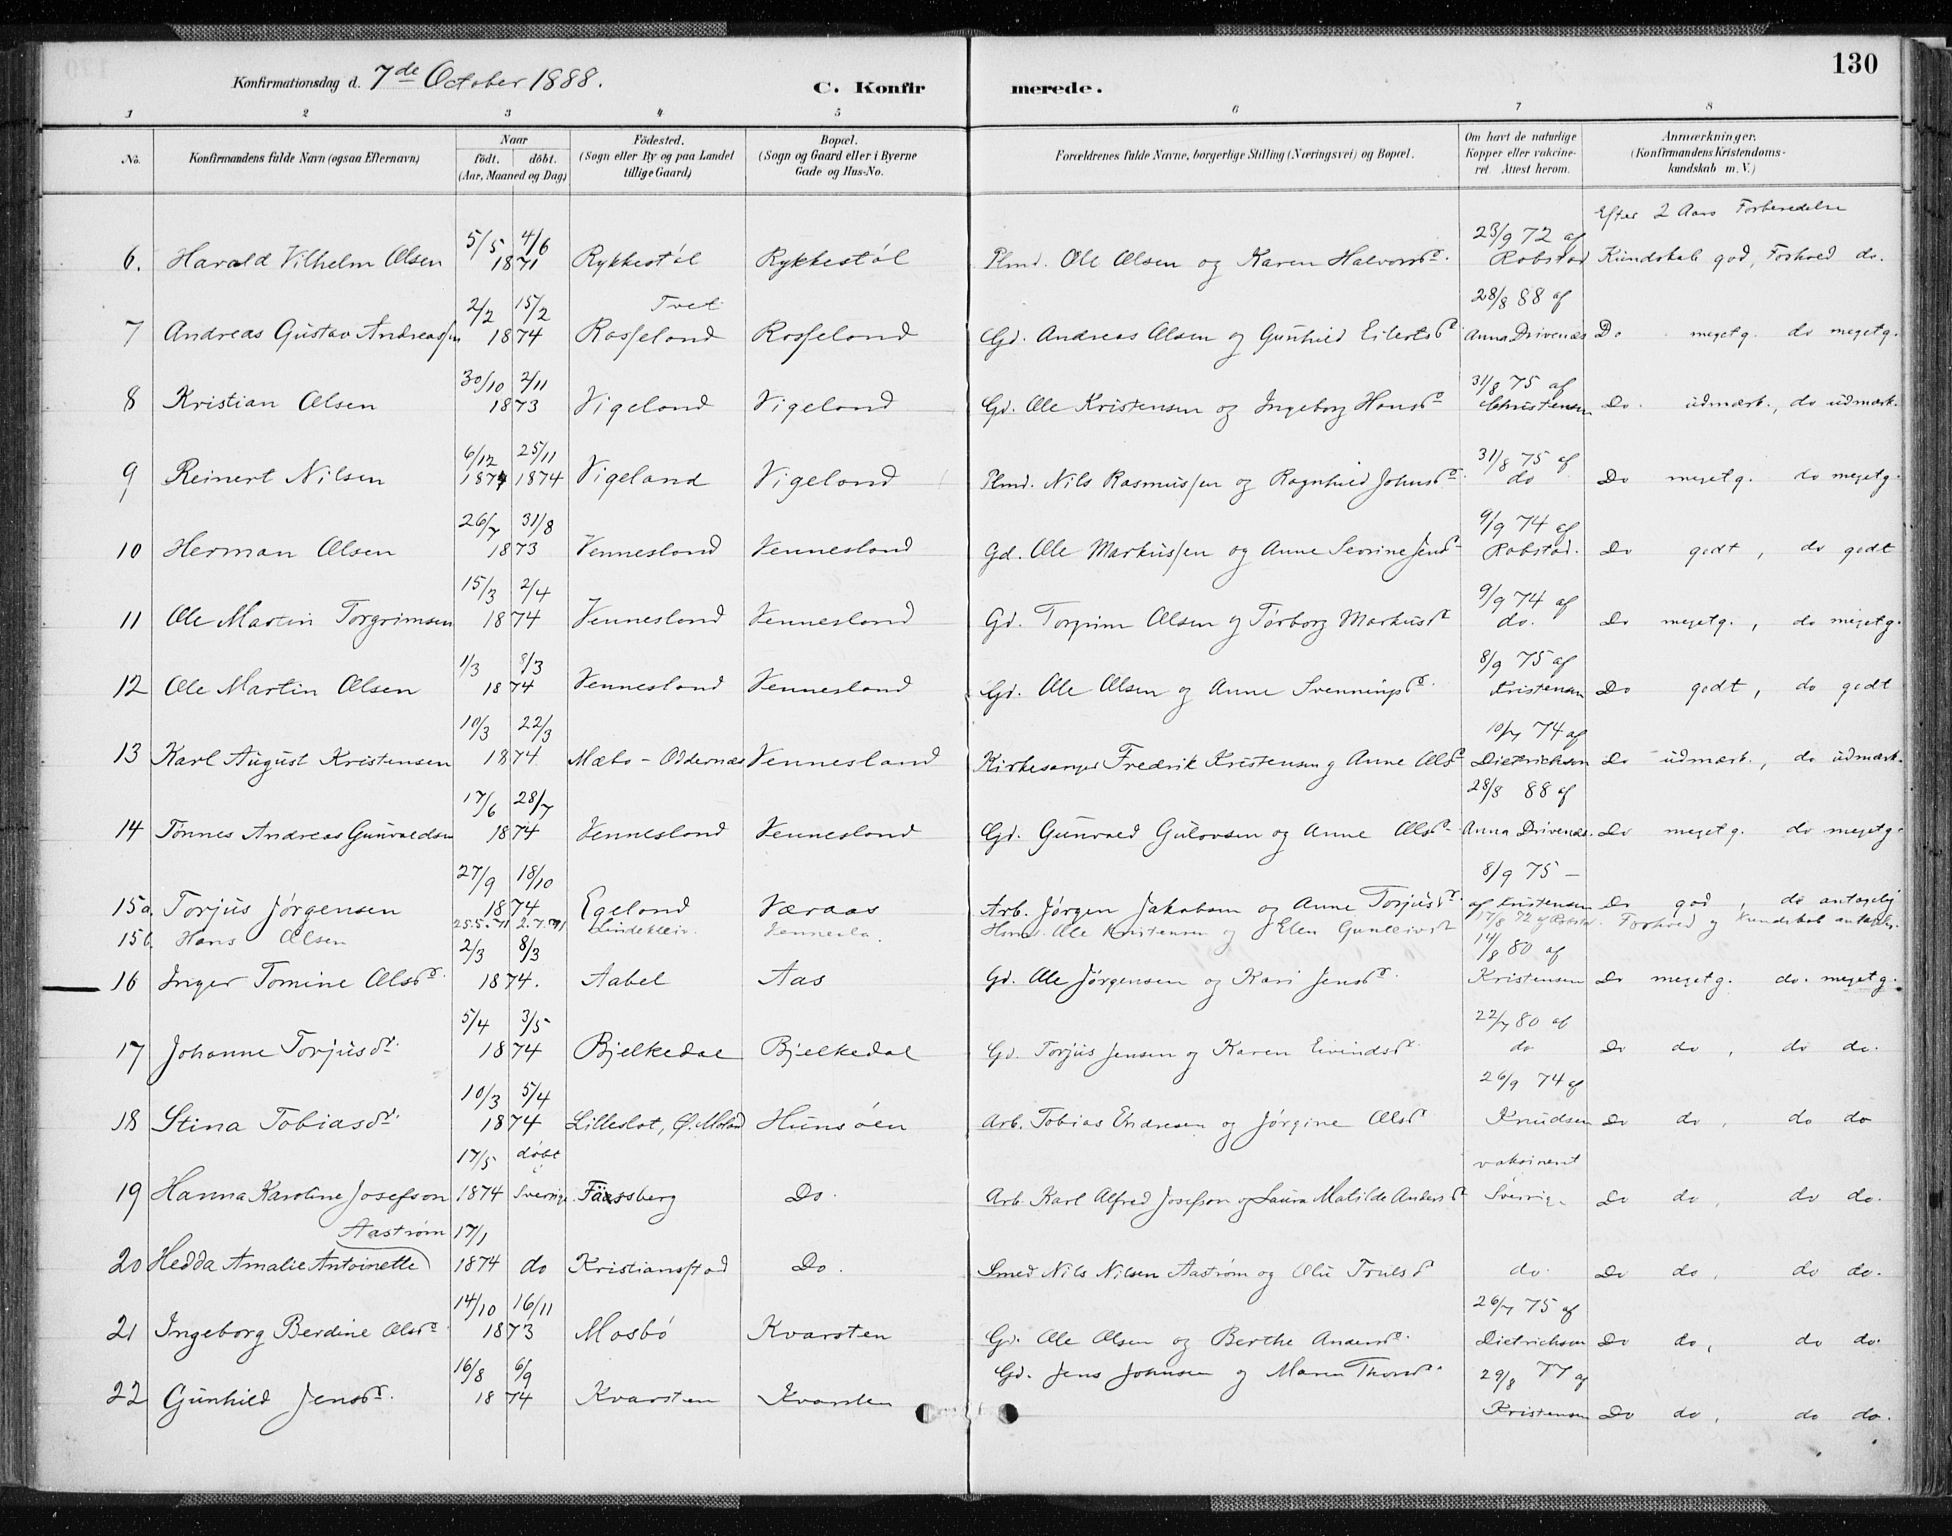 130
Konfirmationsdag d. 7de October 1888.
C. Konfirmerede.
1 2 3 4 5 6 7 8
No. Konfirmandens fulde Navn (ogsaa Efternavn) Naar födt. döbt. (Aar, Maaned og Dag) Födested. (Sogn eller By og paa Landet tillige Gaard) Bopæl. (Sogn og Gaard eller i Byerne Gade og Hus-No. Forældrenes fulde Navne, borgerlige Stilling (Næringsvei) og Bopæl. Om havt de naturlige Kopper eller vakcineret. Attest herom. Anmærkninger. (Konfirmandens Kristendomskundskab m. V.)
Efter 2 Aars Forberedelse
5/5 4/6 23/9 72 af
6. Harald Vilhelm Olsen 1871 Rykkestøl Rykkestøl Plmd. Ole Olsen og Karen Halvorsdr. Robstad Kundskab god, Forhold do.
2/2 15/2 Tvet 28/8 88 af
7 Andreas Gustav Andreassen 1874 Rosseland Rosseland Gd. Andreas Olsen og Gunhild Eilertsdr Anna Drivenæs Do megetg. do megetg.
30/10 2/11 31/8 75 af
8 Kristian Olsen 1873 Vigeland Vigeland Gd. Ole Kristensen og Ingeborg Hansdr Christensen Do. udmærk., do udmærk.
6/12 25/11 31/8 75 af
9 Reinert Nilsen 1874 1874 Vigeland Vigeland Plmd. Nils Rasmussen og Ragnhild Johnsdr. do Do megetg. do megetg.
26/7 31/8 9/9 74 af
10 Herman Olsen 1873 Vennesland Vennesland Gd. Ole Markussen og Anne Severine Jensdr Robstad. Do godt, do godt
15/3 2/4 9/9 74 af
11 Ole Martin Torgrimsen 1874 Vennesland Vennesland Gd. Torgrim Olsen og Torborg Markusdr do. Do megetg., do megetg.
1/3 8/3 8/9 75 af
12 Ole Martin Olsen 1874 Vennesland Vennesland Gd. Ole Olsen og Anne Svenningsdr. Kristensen Do godt, do godt
10/3 22/3 10/7 74 af
13 Karl August Kristensen 1874 Mæbø - Oddernæs Vennesland Kirkesanger Fredrik Kristensen og Anne Olsdr Dietrichson Do udmærk., do udmærk.
17/6 28/7 28/8 88 af
14 Tønnes Andreas Gunvaldsen 1874 Vennesland Vennesland Gd. Gunvald Gulovsen og Anne Olsdr. Anna Drivenæs. Do megetg. do megetg.
27/9 18/10 8/9 75 -
15a. Torjus Jørgensen 1874 Egeland Væraas Arb. Jørgen Jakobsen og Anne Torjusdr. af Kristensen Do god, do antagelig
15b. Hans Olsen 25.5.71 2.7.71 Lindekleiv. Vennesla. Hmd. Ole Kristensen og Elen Gunleivsdr 17/8 72 af Robstad. Forhold og Kundskab antagelig.
2/3 8/3 14/8 80 af
16 Inger Tomine Olsdr. 1874. Aabel Aas Gd. Ole Jørgensen og Kari Jensdr. Kristensen Do megetg. do. megetg.
5/4 3/5 22/7 80 af
17 Johanne Torjusdr. 1874 Bjelkedal Bjelkedal Gd. Torjus Jensen og Karen Eivindsdr. do Do do, do do.
10/3 5/4 26/9 74 af
18 Stina Tobiasdr. 1874 Lilleslot, Ø. Moland Hunsøen Arb. Tobias Endresen og Jørgine Olsdr Knudsen Do do, do do
17/5 døbt i vakcineret
19 Hanna Karoline Josefson 1874 Sverige Fässberg Do. Arb. Karl Alfred Josefson og Laura Matilde Andersdr Sverrig. Do do, do do.
Aastrøm 17/1
20 Hedda Amalie Antoinette 1874 do Kristiansstad Do. Smed Nils Nilsen Aastrøm og Olu Trulsd do. Do do, do do.
14/10 16/11 26/7 75 af
21 Ingeborg Berdine Olsdr. 1873 Mosbø Kvarsten Gd. Ole Olsen og Berthe Andersdr. Dietrichson Do do, do do.
16/8 6/9 Gd. Jens Johnsen og Maren Thorsdr. 29/8 77 af
22 Gunhild Jensdr. 1874 Kvarsten Kvarsten Kristensen Do do, do do.